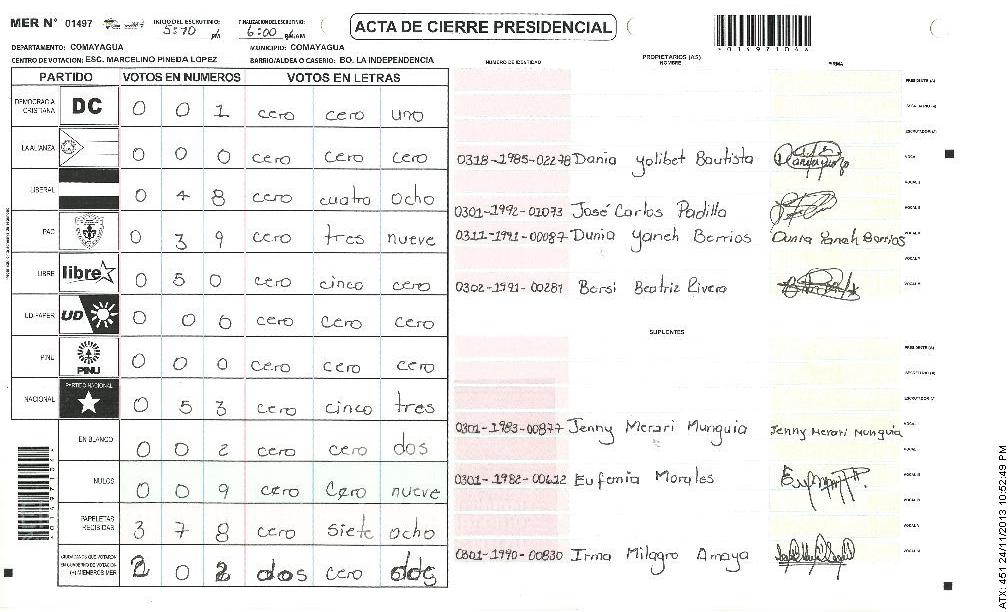 MER N° 01497 INICIO DEL ESCRUTINIO: 5:10 PM FINALIZACION DEL ESCRUTINIO: 6:00 ACTA DE CIERRE PRESIDENCIAL
DEPARTAMENTO: COMAYAGUA MUNICIPIO: COMAYAGUA
CENTRO DE VOTACION: ESC. MARCELINO PINEDA LOPEZ BARRIO/ALDEA O CASERIO: BO. LA INDEPENDENCIA
PARTIDO VOTOS EN NUMEROS VOTOS EN LETRAS
DEMOCRACIA CRISTIANA DC 0 0 1 cero cero uno
LA ALIANZA 0 0 0 cero cero cero
LIBERAL 0 4 8 cero cuatro ocho
PAC 0 3 9 cero tres nueve
LIBRE libre 0 5 0 cero cinco cero
UD-FAPER UD 0 0 0 cero cero cero
PINU PINU 0 0 0 cero cero cero
NACIONAL PARTIDO NACIONAL 0 5 3 cero cinco tres
EN BLANCO 0 0 2 cero cero dos
NULOS 0 0 9 cero cero nueve
PAPELETAS RECIBIDAS 3 7 8 cero siete ocho
CIUDADANOS QUE VOTARON EN CUADERNO DE VOTACION (+) MIEMBROS MER 2 0 2 dos cero dos
NUMERO DE IDENTIDAD PROPIETARIOS (AS) NOMBRE FIRMA
PRESIDENTE (A)
SECRETARIO (A)
ESCRUTADOR (A)
0318-1985-02278 Dania Yolibet Bautista
0301-1992-01073 José Carlos Padilla
0311-1991-00087 Dunia Yaneh Berrios Dunia Yaneh Berrios
0302-1991-00287 Bersi Beatriz Rivera
SUPLENTES
PRESIDENTE (A)
SECRETARIO (A)
ESCRUTADOR (A)
0301-1983-00877 Jenny Merari Munguia Jenny Merari Munguia
0301-1982-00612 Eufemia Morales
0301-1990-00830 Irma Milagro Amaya
ATX: 451 24/11/2013 10:52:49 PM